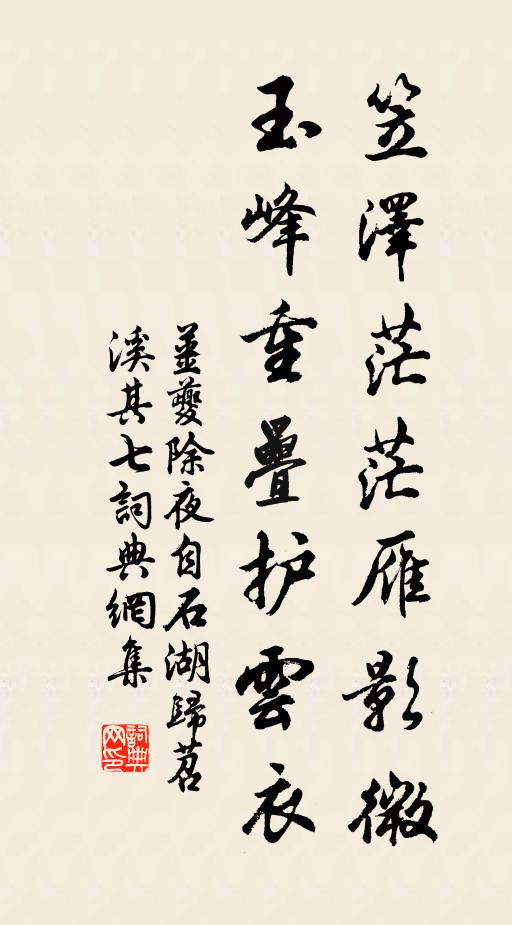 笠澤茫茫雁影微
玉峰重疊护雲衣
姜夔除夜自石湖歸苕
溪其七詞典網集
詞典网印